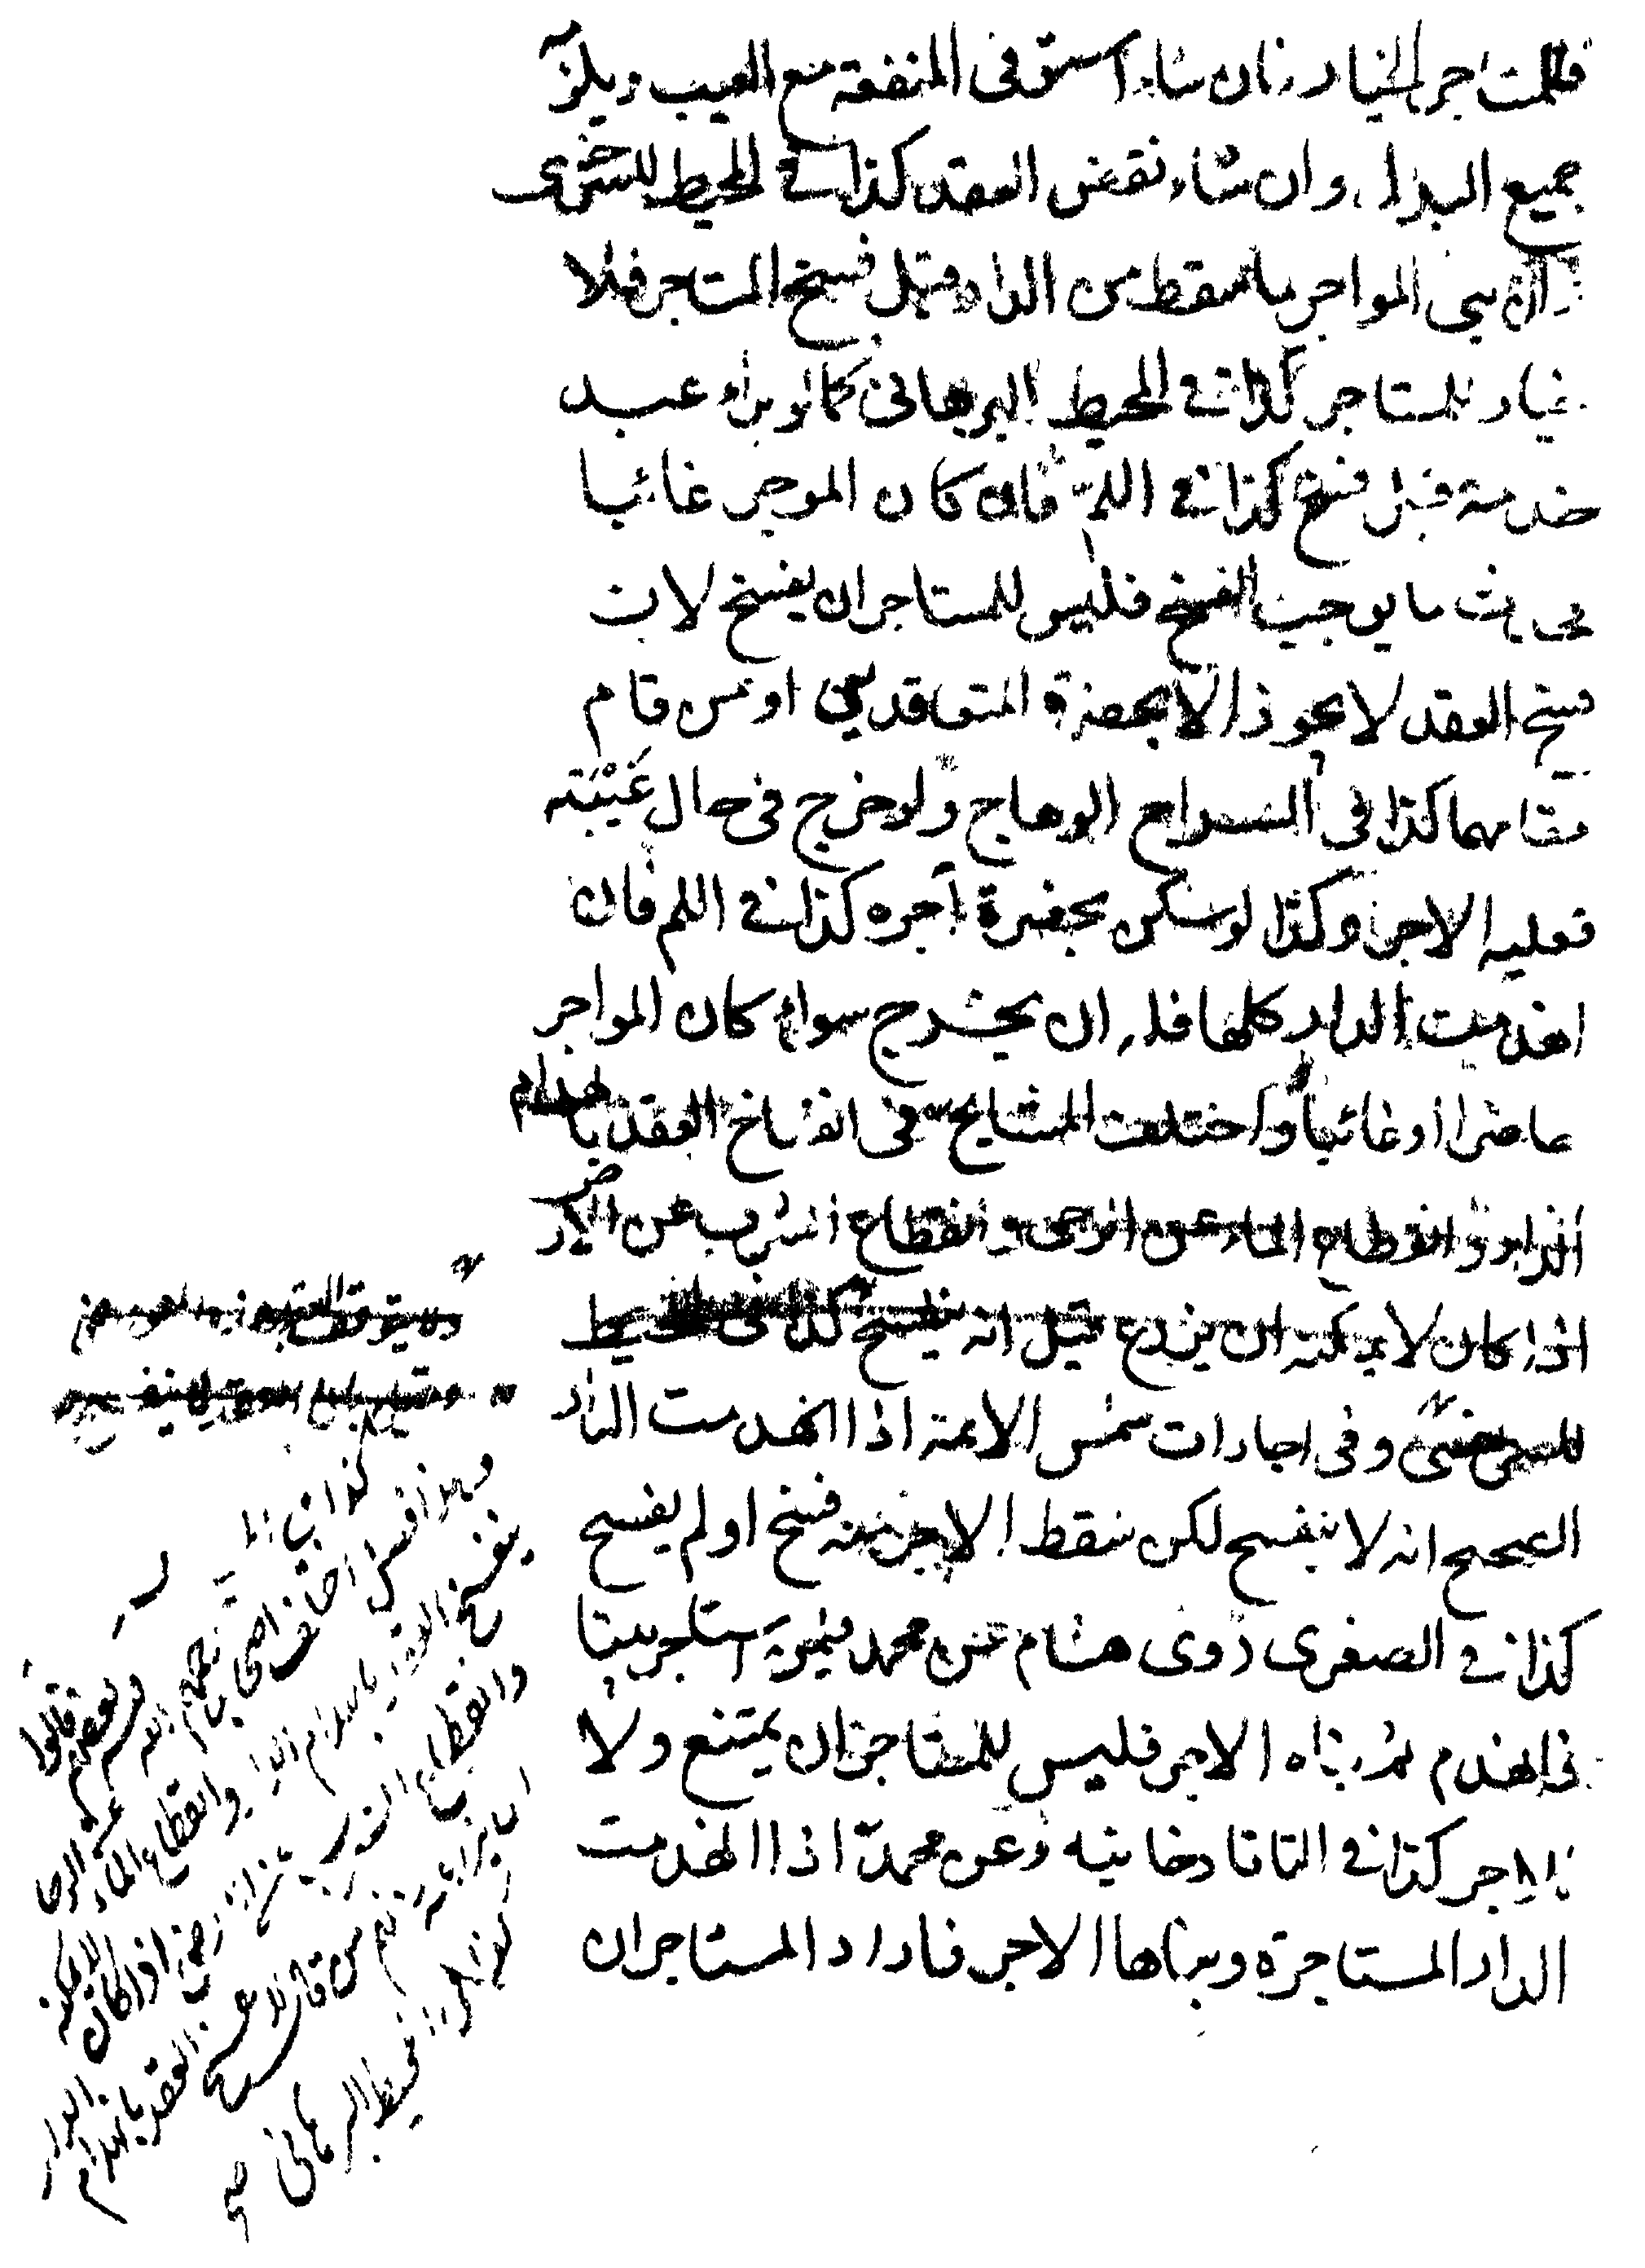 فللمستاجر الخيار فان شاء استوفى المنفعة مع العيب ويلزمه
جميع البدل وان شاء نقض العقد كذا في المحيط للسرخسى
ان بنى المواجر ما سقط من الدار قبل فسخ المستاجر فلا
خيار للمستاجر كذا في المحيط البرهانى كما لو براء عبد
خدمة قبل فسخ كذا في اللم فان كان الموجر غائبا
حدث ما يوجب الفسخ فليس للمستاجر ان يفسخ لان
فسخ العقد لا يجوز الا بحضرة المتعاقدين او من قام
مقامهما كذا في السراج الوهاج ولو خرج في حال غيبته
فعليه الاجر وكذا لو سكن بحضرة آجره كذا في اللم فان
انهدمت الدار كلها فله ان يخرج سواء كان المواجر
حاضرا او غائبا واختلف المشايخ في انفساخ العقد بانهدام
الدار وانقطاع الماء عن الرحى وانقطاع الشرب عن الارض
اذا كان لا يمكنه ان يزرع قيل انه ينفسخ كذا في المحيط
للسرخسى وفى اجارات شمس الائمة اذا انهدمت الدار
الصحيح انه لا ينفسخ لكن سقط الاجر عنه فسخ او لم يفسخ
كذا في الصغرى روى هشام عن محمد فيمن استاجر بيتا
فانهدم ثم بناه الاجر فليس للمستاجر ان يمتنع ولا
للاجر كذا في التاتارخانيه وعن محمد اذا انهدمت
الدار المستاجرة وبناها الاجر فاراد المستاجر ان
وهذا فصل اختلف اصحابنا رحمهم الله وبعضهم قالوا
ينفسخ العقد بانهدام الدار وانقطاع الماء عن الرحى
وانقطاع الشرب اذا كان لا يمكنه
من قال لا ينفسخ العقد بانهدام الدار
كذا في المحيط البرهانى صح